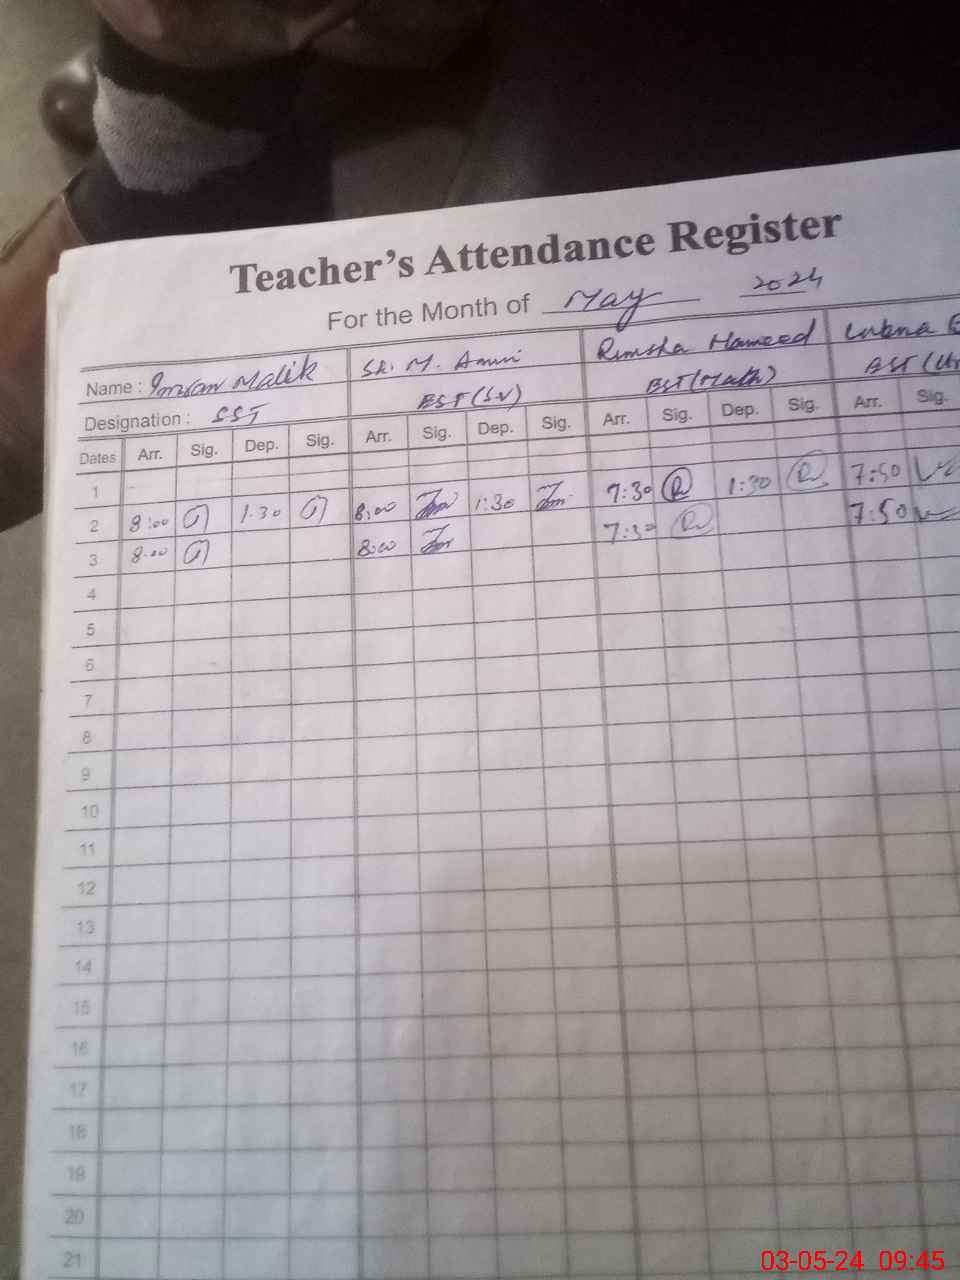 Teacher's Attendance Register
For the Month of May 2024
Name : Imran Malik Sh. M. Amin Rimsha Hameed Lubna
Designation : SST EST (S.V) EST (Math) EST
Dates Arr. Sig. Dep. Sig. Arr. Sig. Dep. Sig. Arr. Sig. Dep. Sig. Arr. Sig.
1
2 8:00 1:30 8:00 1:30 7:30 1:30 7:50
3 8:00 8:00 7:30 7:50
4
5
6
7
8
9
10
11
12
13
14
15
16
17
18
19
20
21
03-05-24 09:45